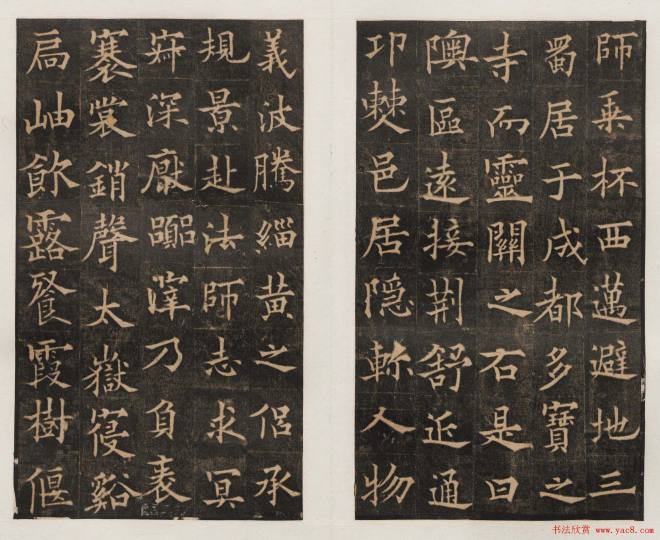 師乗杯西邁避地三
蜀居于成都多寶之
寺而靈關之右是曰
隩區遠接荊舒近通
邛僰邑居隠軫人物
義波騰緇黄之侶承
規景赴法師志求冥
寂深厭嚻滓乃負袠
褰裳銷聲太嶽寝谿
扃岫飲露飡霞樹偃
书法欣赏 www.yac8.com